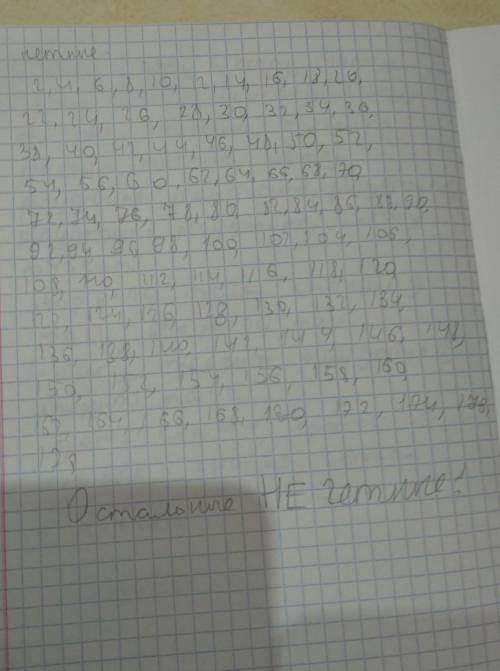 четные
2, 4, 6, 8, 10, 12, 14, 16, 18, 20,
22, 24, 26, 28, 30, 32, 34, 36,
38, 40, 42, 44, 46, 48, 50, 52,
54, 56, 60, 62, 64, 66, 68, 70,
72, 74, 76, 78, 80, 82, 84, 86, 88, 90,
92, 94, 96, 98, 100, 102, 104, 106,
108, 110, 112, 114, 116, 118, 120,
122, 124, 126, 128, 130, 132, 134,
136, 138, 140, 142, 144, 146, 148,
150, 152, 154, 156, 158, 160,
162, 164, 166, 168, 170, 172, 174, 176,
178
Остальные НЕ четные!